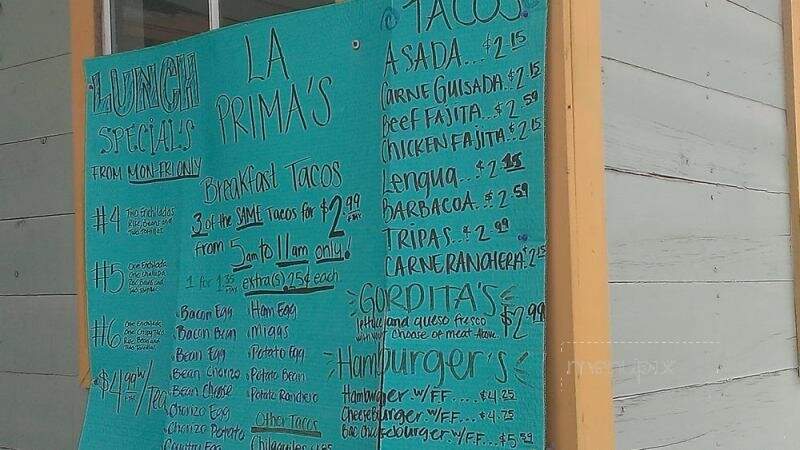 LUNCH
SPECIAL'S
FROM MON-FRI ONLY
#4 Two Enchiladas
Rice, Beans and
Two Tortillas
#5 One Enchilada
One Chalupa
Rice Beans and
#6 One Enchilada
One Crispy Taco
Rice Beans and
Two Tortillas
$4.99 w/Tea
LA
PRIMA'S
Breakfast Tacos
3 of the SAME Tacos for $2.99
from 5am to 11am only!
1 for 1.35 extra(s) .25¢ each
Bacon Egg
Bacon Bean
Bean Egg
Bean Chorizo
Bean Cheese
Chorizo Egg
Chorizo Potato
Country Egg
Ham Egg
Migas
Potato Egg
Potato Bean
Potato Ranchero
Other Tacos
Chilaquiles
TACOS
ASADA...$2.15
CARNE GUISADA..$2.15
Beef FAJITA...$2.59
CHICKEN FAJITA..$2.15
Lengua...$2
BARBACOA..$2.59
TRIPAS...$2.99
CARNE RANCHERA.$2.15
GORDITA'S
lettuce and queso fresco
with your choose of meat Above. $2.99
Hamburger's
Hamburger w/FF....$4.25
CheeseBurger w/FF....$4.75
Bac Cheeseburger w/FF...$5.59
menupix